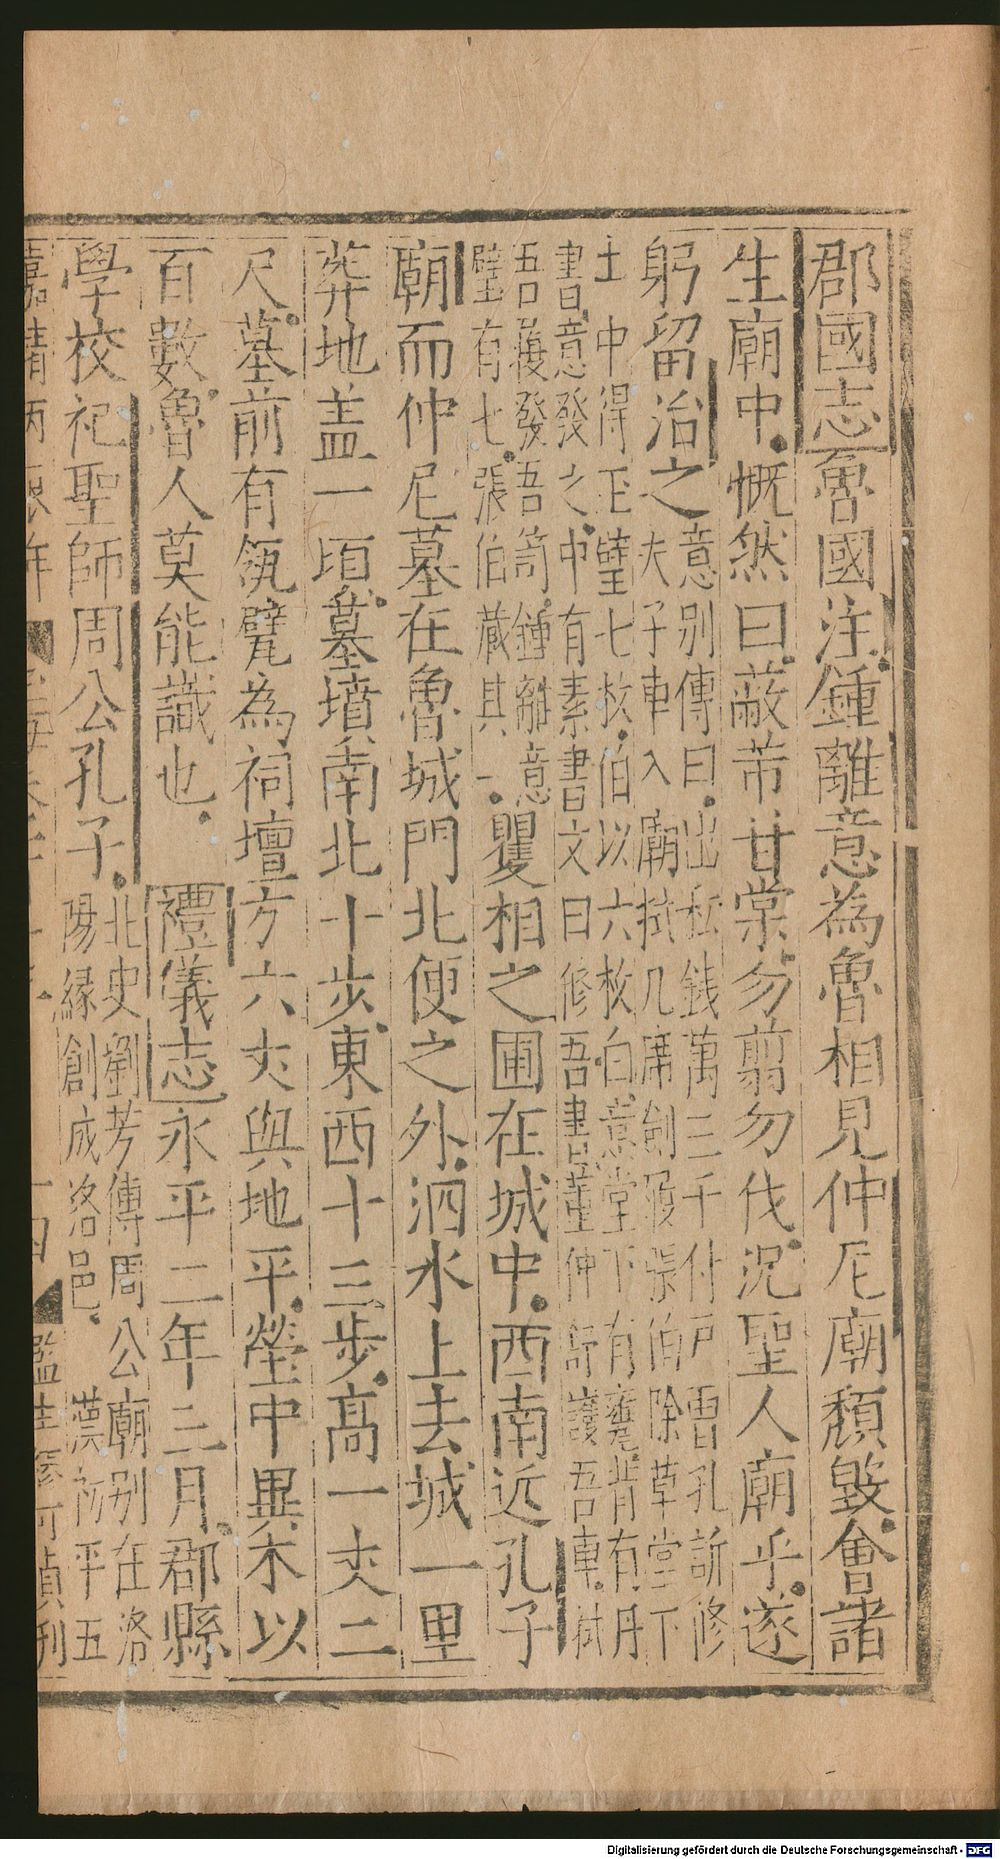 郡國志魯國注鍾離意為魯相見仲尼廟頹毀會諸
生廟中慨然曰蔽芾甘棠勿翦勿伐況聖人廟乎遂
躬留治之
意别傳曰出私錢萬三千付戸曹孔訢修
夫子車入廟拭几席劍履張伯除草堂下
土中得玉璧七枚伯以六枚白意堂下有甕背有丹
書意發之中有素書文曰修吾書董仲舒護吾車拭
吾履發吾笥鍾離意
璧有七張伯藏其一
瞿相之圃在城中西南近孔子
廟而仲尼墓在魯城門北便之外泗水上去城一里
葬地盖一頃墓墳南北十步東西十三步髙一丈二
尺墓前有瓴甓為祠壇方六丈與地平塋中異木以
百數魯人莫能識也禮儀志永平二年三月郡縣
學校祀聖師周公孔子
北史劉芳傳周公廟别在洛
陽緣創成洛邑漢初平五
嘉靖丙辰年
監生
刋
Digitalisierung gefördert durch die Deutsche Forschungsgemeinschaft - DFG